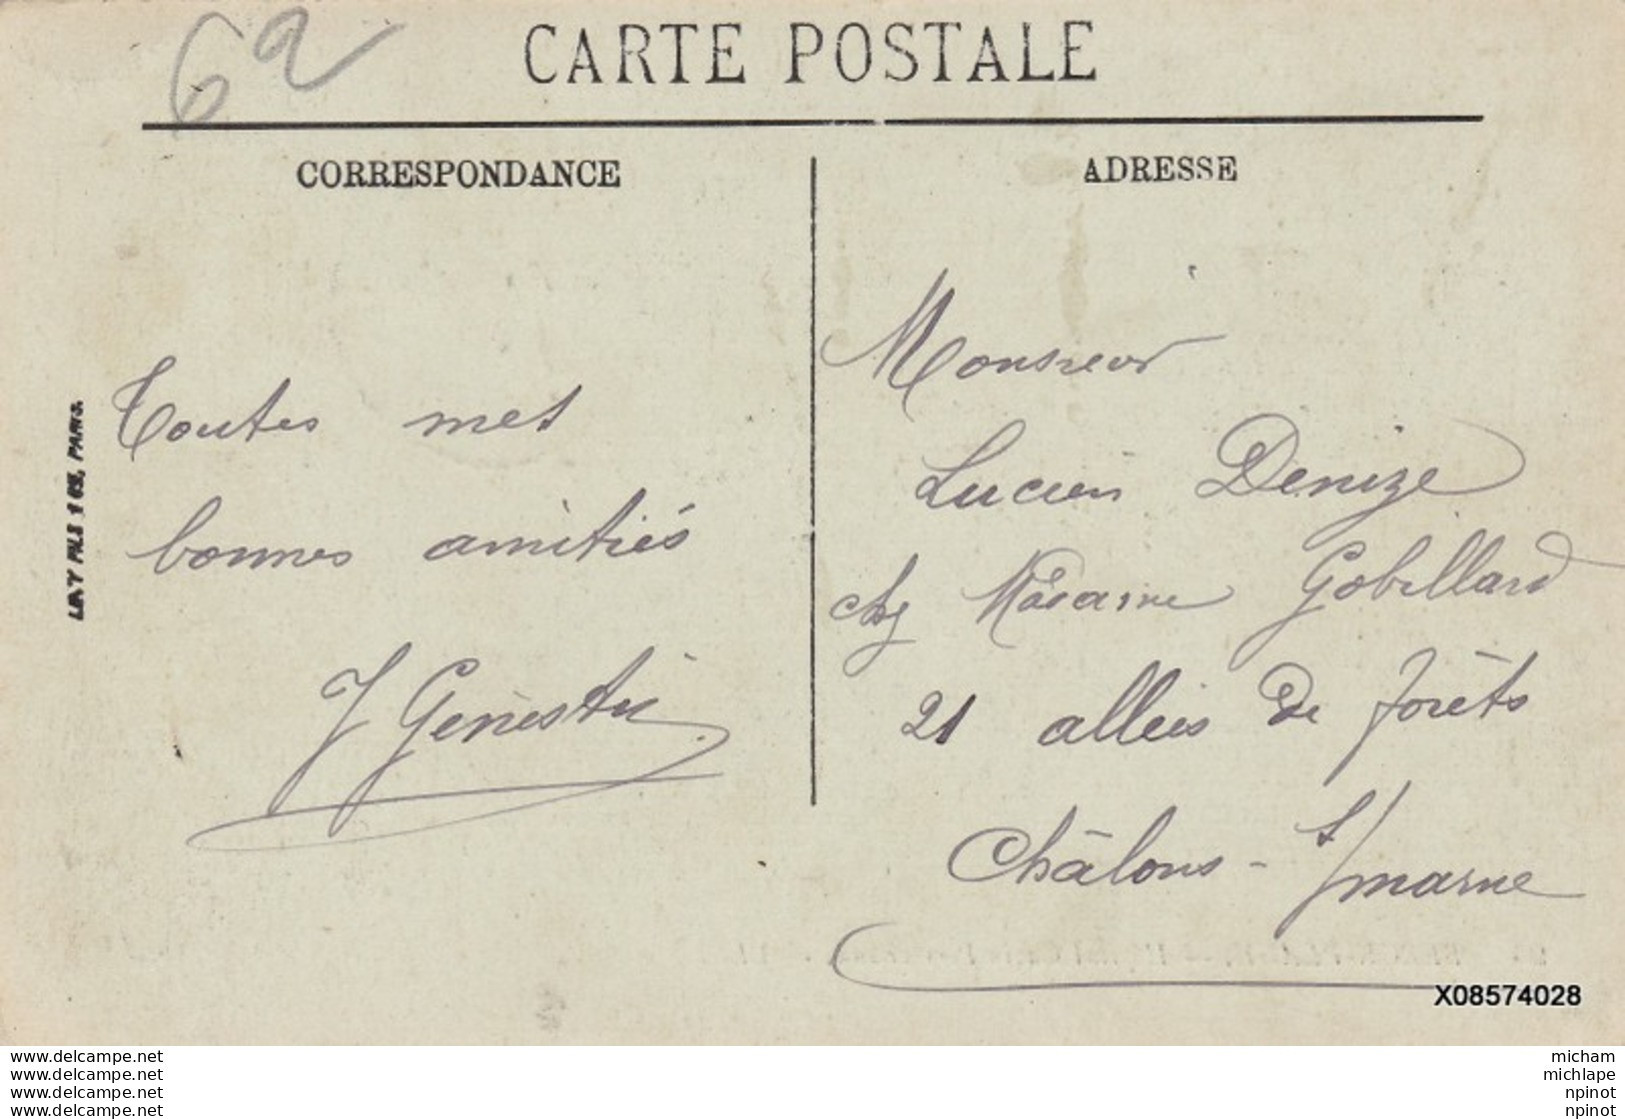 6a
CARTE POSTALE
CORRESPONDANCE
ADRESSE
Toutes mes
bonnes amitiés
J Genestin
Monsieur
Lucien Denize
chez Madame Gobillard
21 allées de forêts
Châlons - s/marne
LEVY FILS & Cie, PARIS.
X08574028
www.delcampe.net
www.delcampe.net
www.delcampe.net
www.delcampe.net
micham
michlape
npinot
npinot